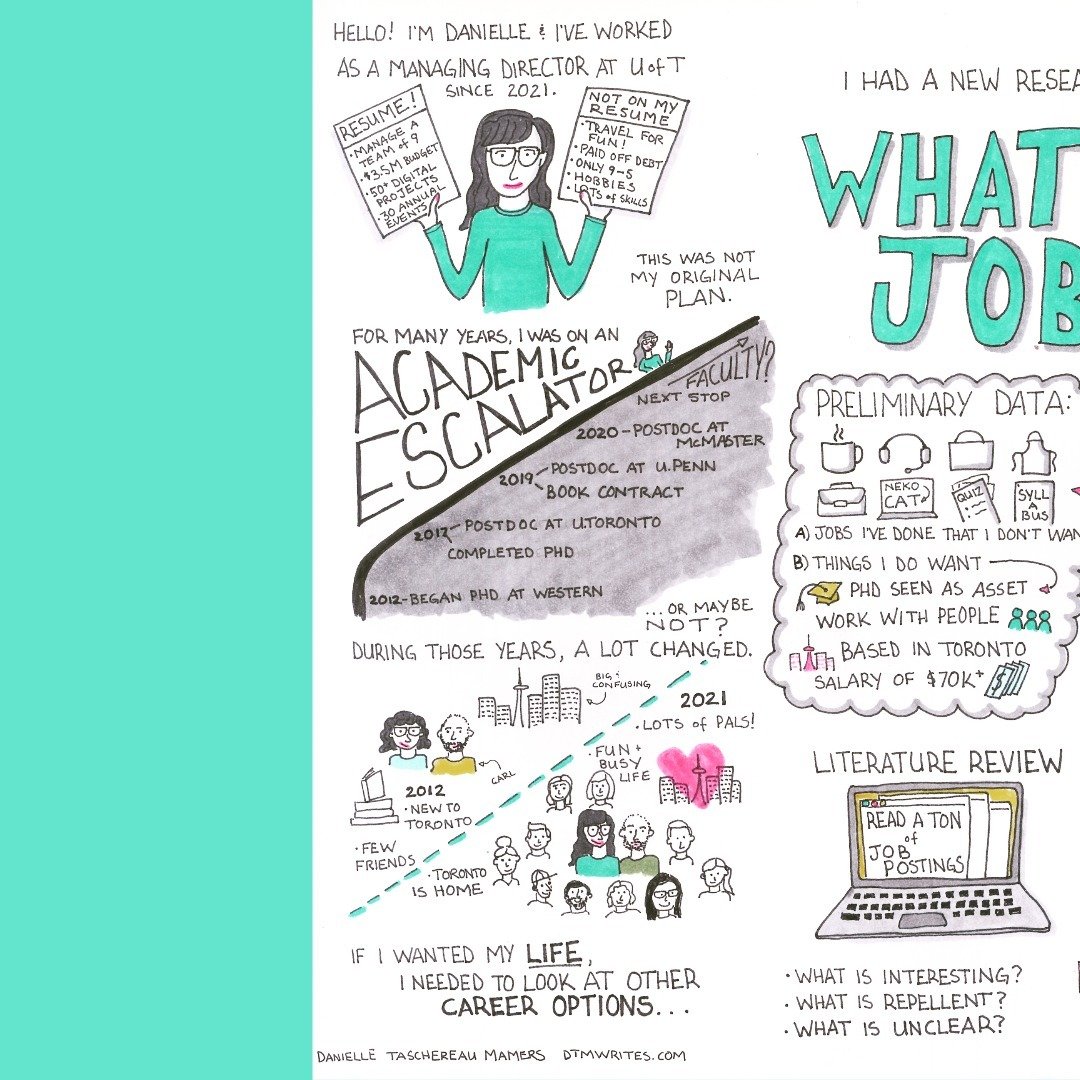 HELLO! I'M DANIELLE & I'VE WORKED
AS A MANAGING DIRECTOR AT U of T
SINCE 2021.
RESUME!
• MANAGE A
TEAM of 9
• $3.5M BUDGET
• 50+ DIGITAL
PROJECTS
• 30 ANNUAL
EVENTS
NOT ON MY
RESUME
• TRAVEL FOR
FUN!
• PAID OFF DEBT
• ONLY 9-5
• HOBBIES
• LOTS of SKILLS
THIS WAS NOT
MY ORIGINAL
PLAN.
FOR MANY YEARS, I WAS ON AN
ACADEMIC
ESCALATOR
FACULTY?
NEXT STOP
2020 - POSTDOC AT
McMASTER
2019 - POSTDOC AT U.PENN
- BOOK CONTRACT
2017 - POSTDOC AT U.TORONTO
COMPLETED PHD
2012 - BEGAN PHD AT WESTERN
...OR MAYBE
NOT?
DURING THOSE YEARS, A LOT CHANGED.
BIG &
CONFUSING
CARL
2012
• NEW TO
TORONTO
• FEW
FRIENDS
2021
• LOTS of PALS!
• FUN +
BUSY
LIFE
• TORONTO
IS HOME
IF I WANTED MY LIFE,
I NEEDED TO LOOK AT OTHER
CAREER OPTIONS...
DANIELLE TASCHEREAU MAMERS DTMWRITES.COM
I HAD A NEW RESEA
WHAT
JOB
PRELIMINARY DATA:
NEKO
CAT
QUIZ
SYLL
A
BUS
A) JOBS I'VE DONE THAT I DON'T WAN
B) THINGS I DO WANT
PHD SEEN AS ASSET
WORK WITH PEOPLE
BASED IN TORONTO
SALARY OF $70K+
LITERATURE REVIEW
READ A TON
of
JOB
POSTINGS
• WHAT IS INTERESTING?
• WHAT IS REPELLENT?
• WHAT IS UNCLEAR?